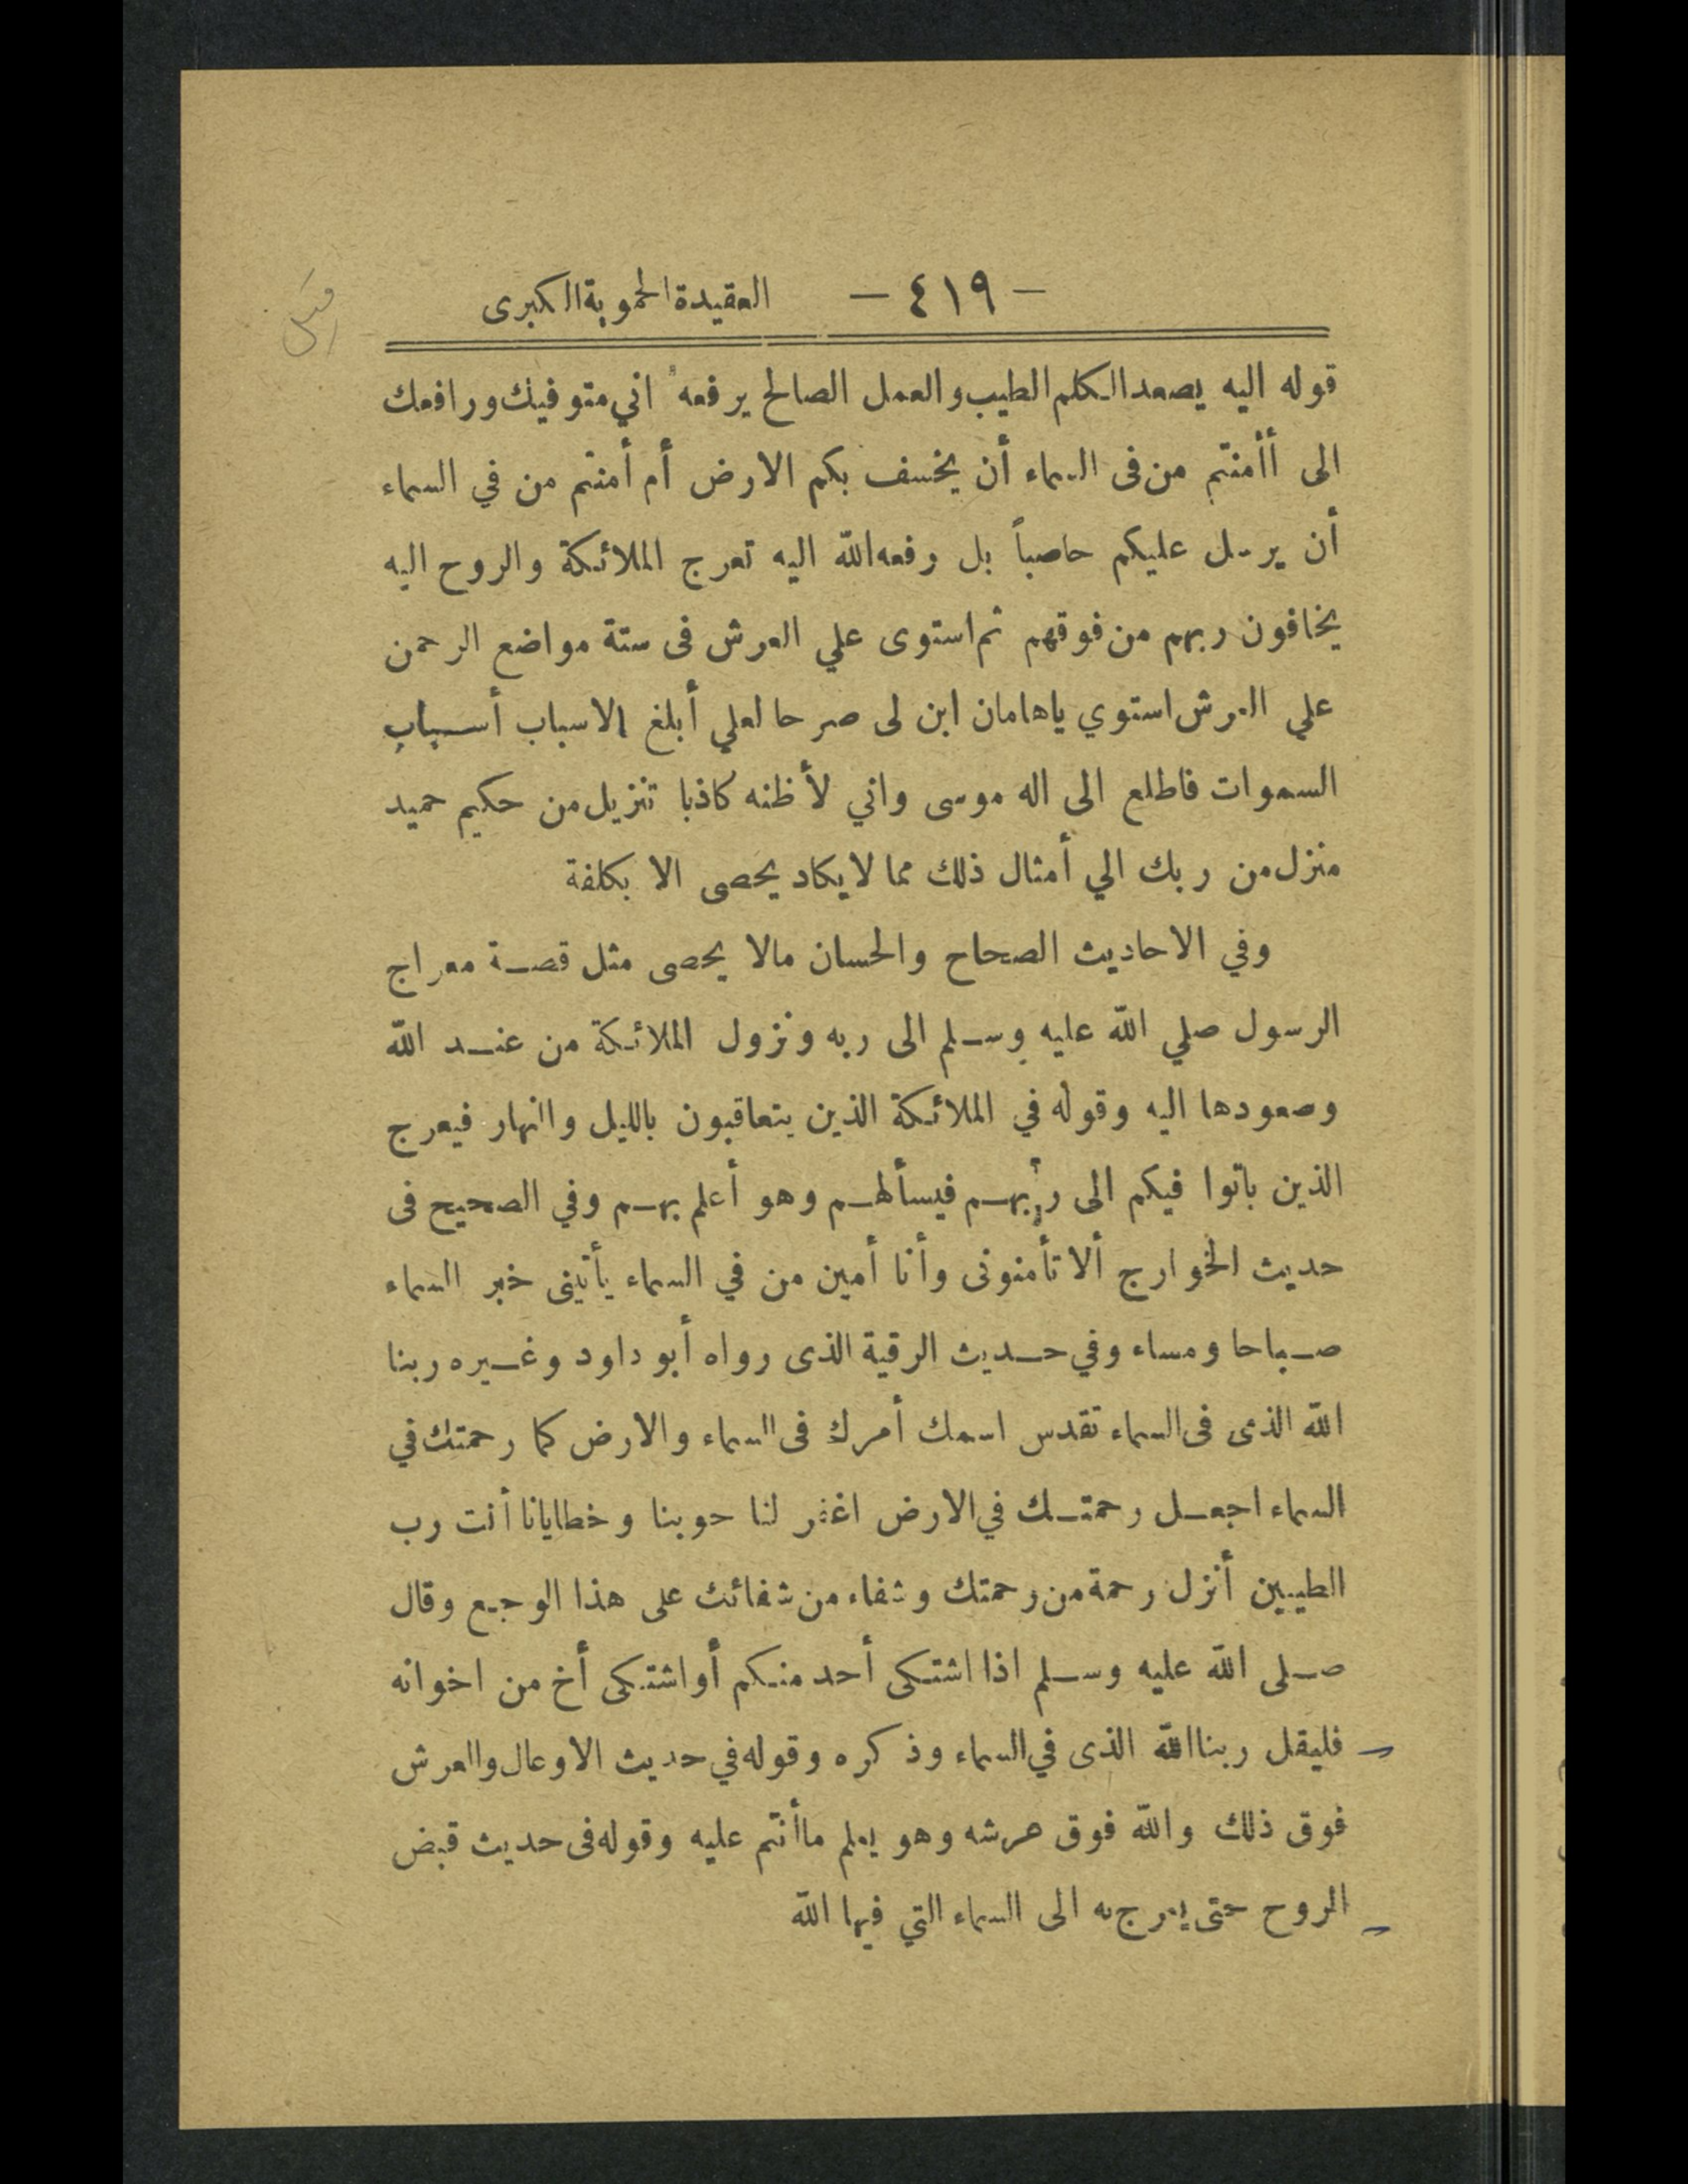 — ٤١٩ — العقيدة الحموية الكبرى
قوله اليه يصعد الكلم الطيب والعمل الصالح يرفعه اني متوفيك ورافعك
الى أأمنتم من فى السماء أن يخسف بكم الارض أم أمنتم من في السماء
أن يرسل عليكم حاصباً بل رفعه الله اليه تعرج الملائكة والروح اليه
يخافون ربهم من فوقهم ثم استوى علي العرش فى ستة مواضع الرحمن
علي العرش استوي ياهامان ابن لى صرحا لعلي أبلغ الاسباب أسباب
السموات فاطلع الى اله موسى واني لأظنه كاذبا تنزيل من حكيم حميد
منزل من ربك الي أمثال ذلك مما لا يكاد يحصى الا بكلفة
وفي الاحاديث الصحاح والحسان مالا يحصى مثل قصة معراج
الرسول صلي الله عليه وسلم الى ربه ونزول الملائكة من عند الله
وصعودها اليه وقوله في الملائكة الذين يتعاقبون بالليل والنهار فيعرج
الذين باتوا فيكم الى ربهم فيسألهم وهو أعلم بهم وفي الصحيح فى
حديث الخوارج ألا تأمنونى وأنا أمين من في السماء يأتينى خبر السماء
صباحا ومساء وفي حديث الرقية الذى رواه أبو داود وغيره ربنا
الله الذى فى السماء تقدس اسمك أمرك فى السماء والارض كما رحمتك في
السماء اجعل رحمتك في الارض اغفر لنا حوبنا وخطايانا أنت رب
الطيبين أنزل رحمة من رحمتك وشفاء من شفائك على هذا الوجع وقال
صلى الله عليه وسلم اذا اشتكى أحد منكم أو اشتكى أخ من اخوانه
فليقل ربنا الله الذى في السماء وذكره وقوله في حديث الاوعال والعرش
فوق ذلك والله فوق عرشه وهو يعلم ما أنتم عليه وقوله فى حديث قبض
الروح حتى يعرج به الى السماء التي فيها الله